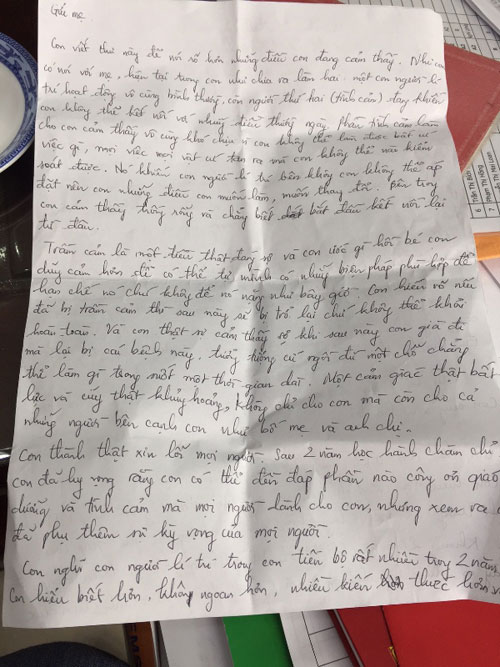 Gửi mẹ
Con viết thư này để nói rõ hơn những điều con đang cảm thấy. Như con
có nói với mẹ, hiện tại trong con như chia ra làm hai: một con người lí
trí hoạt động vô cùng bình thường, con người thứ hai (tình cảm) đang khiến
con không thể kết nối với những điều thường ngày. Phần tình cảm làm
cho con cảm thấy vô cùng khó chịu vì con không thể làm được bất cứ
việc gì, mọi việc mọi vật cứ tản ra mà con không thể nào kiểm
soát được. Nó khiến con người lí trí bên con không thể áp
đặt nên con những điều con muốn làm, muốn thay đổi. Bên trong
con cảm thấy trống rỗng và chẳng biết bắt đầu kết nối lại
từ đâu.
Trầm cảm là một điều thật đáng sợ và con ước gì hồi bé con
dũng cảm hơn để có thể tự mình có những biện pháp phù hợp để
hạn chế nó chứ không để nó nặng như bây giờ. Con hiểu rõ nếu
đã bị trầm cảm thì sau này sẽ bị trở lại chứ không thể khỏi
hoàn toàn. Và con thật sự cảm thấy sợ khi sau này con già đi
mà lại bị cái bệnh này, tưởng tượng cứ ngồi đừ một chỗ chẳng
thể làm gì trong suốt một thời gian dài. Một cảm giác thật bất
lực và suy thật khủng hoảng, không chỉ cho con mà còn cho cả
những người bên cạnh con như bố mẹ và anh chị.
Con thành thật xin lỗi mọi người. Sau 2 năm học hành chăm chỉ
con đã hy vọng rằng con có thể đền đáp phần nào công ơn giáo
dưỡng và tình cảm mà mọi người dành cho con, nhưng xem ra
đã phụ thêm sự kỳ vọng của mọi người.
Con nghĩ con người lí trí trong con tiến bộ rất nhiều trong 2 năm
Con hiểu biết hơn, khôn ngoan hơn, nhiều kiến thức hơn và